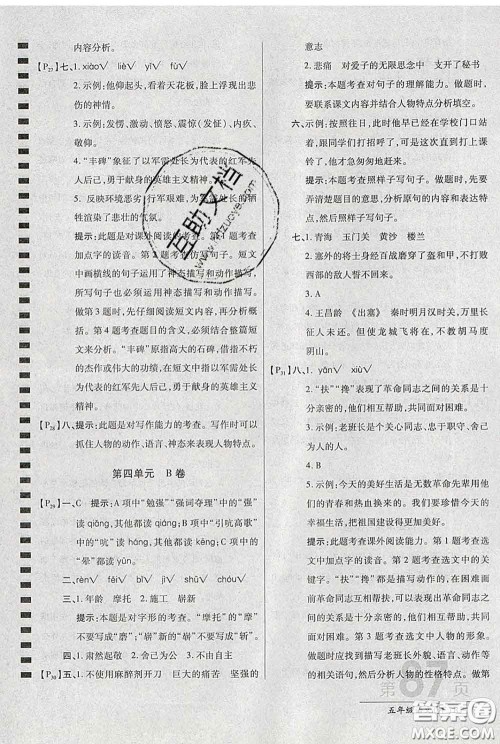 内容分析。
【P27】七、1. xiào√ liè√ yī√ fù√
2. 示例：他仰起头，看着天花板，脸上浮现出悲伤的神情。
3. 示例：发愣、激动、愤怒、震惊(震惊)、内疚、敬仰。
4. “丰碑”象征了以军需处长为代表的红军先人后己，勇于献身的英雄主义精神。
5. 反映环境恶劣，行军艰难，为英雄的牺牲渲染了悲伤的气氛。
提示：此题是对课外阅读的考查。第1题考查加点字的读音。第2题考查仿写句子。短文中画横线的句子运用了神态描写和动作描写，所写句子必须运用神态描写和动作描写。做第3题时，先仔细阅读短文内容，再分析概括。第4题考查分析能力，必须结合整篇短文来分析。“丰碑”原指高大的石碑，借指不朽的杰作或伟大的功绩，这里指以军需处长为代表的红军先人后己，勇于献身的英雄主义精神。
【P28】八、提示：此题是对写作能力的考查。写作时可以抓住人物的动作、语言、神态来表现人物特点。
第四单元 B卷
【P29】一、C 提示：A项中“勉强”“强词夺理”中的“强”读 qiǎng，其他的都读 qiáng。B项中“引吭高歌”中的“吭”读 háng，其他的都读 kēng。D项中的“晕”都读 yūn。
二、rèn√ dǒu√ shì√ chāu√
三、1. 年龄 摩托 2. 施工 崭新
提示：本题是对字形的考查。“摩托”的“摩”不要写成“磨”；“崭新”的“崭”不要写成“暂”。
四、1. 肃然起敬 2. 舍己为公 3. 不由自主
【P30】五、1. 不使用麻醉剂开刀 巨大的痛苦 坚强的
意志
2. 悲痛 对爱子的无限思念中 支开了秘书
提示：本题考查对句子的理解能力。做题时，要联系课文内容并结合人物特点分析填空。
六、示例：按照往日，我早早地来到学校门口站岗，跟同学们打招呼了，可是这次直到打上课铃，他才急匆匆地赶来。
提示：本题考查照样子写句子。做题时，先要弄清楚所给的例句，分析原句的内容和表达特点，再照样子写句子。
七、1. 青海 玉门关 黄沙 楼兰
2. 塞外的将士身经百战磨穿了盔和甲，不打败西部的敌人誓不回来。
3. 王昌龄 《出塞》 秦时明月汉时关，万里长征人未还。但使龙城飞将在，不教胡马度阴山。
【P31】八、1. yǎn√ xiù√
2. “扶”“搀”表现了革命同志之间的关系是十分亲密的，他们互相帮助，相互支持，共同面对困难。
3. 示例：老班长是个忠于革命、忠于职守、舍己为人的人。
4. B
5. 示例：今天的美好生活是革命先辈们用自己的青春和热血换来的。我们要珍惜今天的幸福生活，把祖国建设得更加繁荣富强。
提示：本题考查课外阅读能力。第1题考查选文中加点字的读音。第2题考查选文中的关键字。“扶”“搀”是描写动作的，在艰难的环境中，同志们互相帮扶，表现了革命同志之间的关系是十分亲密的，他们互相帮助，相互支持，共同面对困难。第3题考查选文中人物的形象。做题时，可以抓住人物的动作、神态、语言等的描写，分析人物的性格特点。第4题
第67页
五年级
互助文档
www.hzuowen.com
答案圈
MXQE.COM